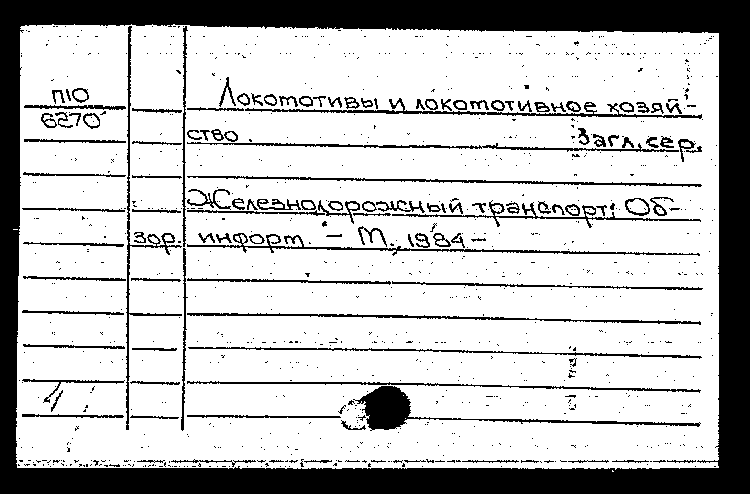 П10
6270
Локомотивы и локомотивное хозяй-
ство. Загл. сер.
Железнодорожный транспорт: Об-
зор. информ. - М., 1984-
4